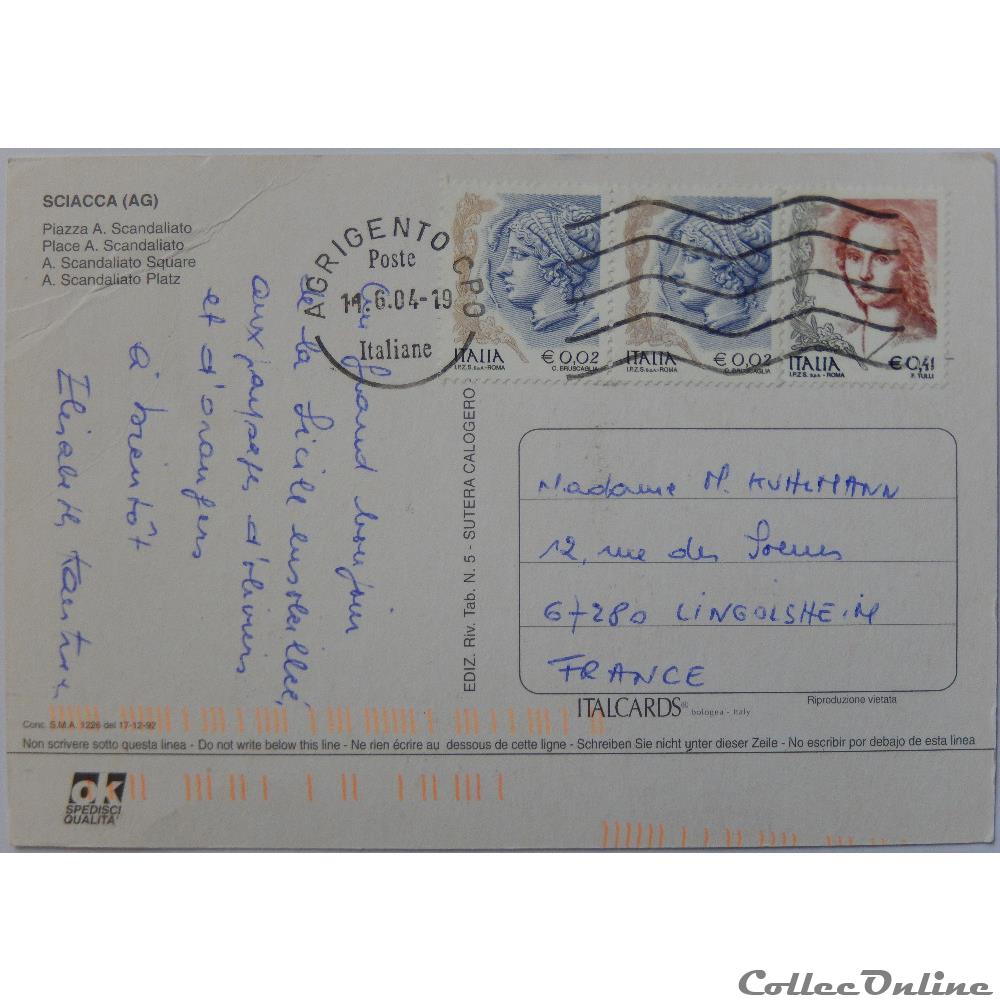 SCIACCA (AG)
Piazza A. Scandaliato
Place A. Scandaliato
A. Scandaliato Square
A. Scandaliato Platz
AGRIGENTO CPO
Poste
11.6.04-19
Italiane
ITALIA € 0,02
I.P.Z.S. S.p.A. - ROMA C. BRUSCAGLIA
ITALIA € 0,02
I.P.Z.S. S.p.A. - ROMA C. BRUSCAGLIA
ITALIA € 0,41
I.P.Z.S. S.p.A. - ROMA F. TULLI
Un grand bonjour
de la Sicile ensoleillée,
aux paysages d'oliviers
et d'orangers
à bientôt
Elisabeth
EDIZ. Riv. Tab. N. 5 - SUTERA CALOGERO
Madame M. KUHLMANN
12, rue des Soeurs
67280 LINGOLSHEIM
FRANCE
ITALCARDS® bologna - Italy
Riproduzione vietata
Conc. S.M.A. 1226 del 17-12-92
Non scrivere sotto questa linea - Do not write below this line - Ne rien écrire au dessous de cette ligne - Schreiben Sie nicht unter dieser Zeile - No escribir por debajo de esta linea
ok
SPEDISCI
QUALITA'
CollecOnline